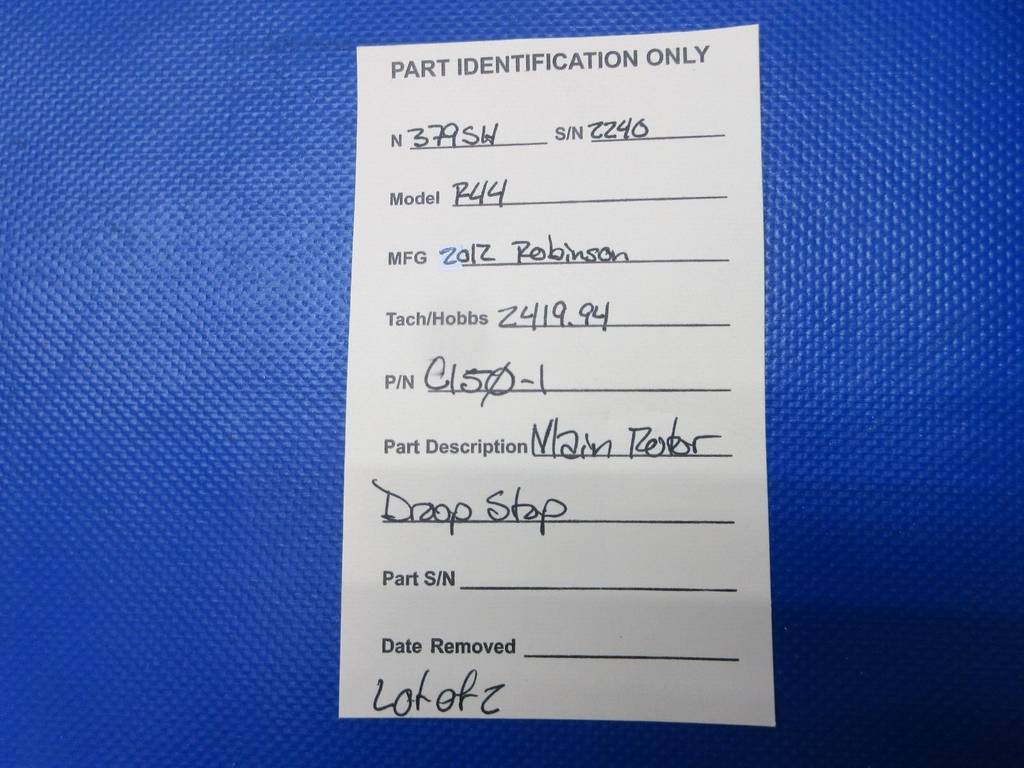 PART IDENTIFICATION ONLY
N 379SW S/N 2240
Model R44
MFG 2012 Robinson
Tach/Hobbs 2419.94
P/N C150-1
Part Description Main Rotor
Droop Stop
Part S/N
Date Removed
Lot of 2